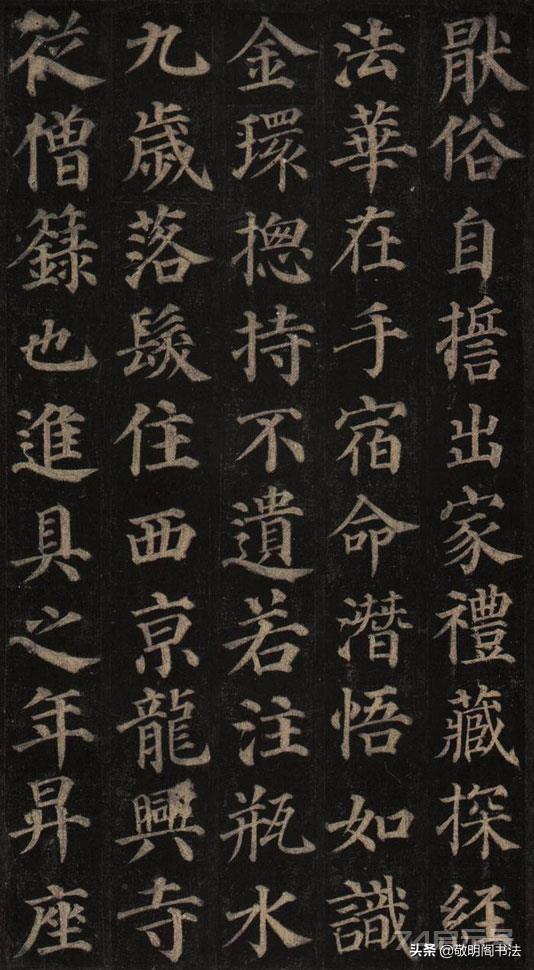 厭俗自誓出家禮藏探经
法華在手宿命潛悟如識
金環揔持不遺若注瓶水
九歲落髮住西京龍興寺
從僧籙也進具之年昇座
头条 @敬明阁书法